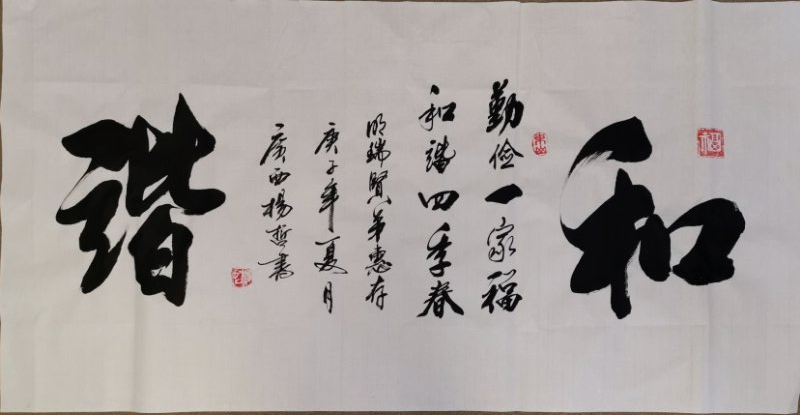 和
勤俭一家福
和谐四季春
明端贤弟惠存
庚子年夏月
广西杨哲书
谐